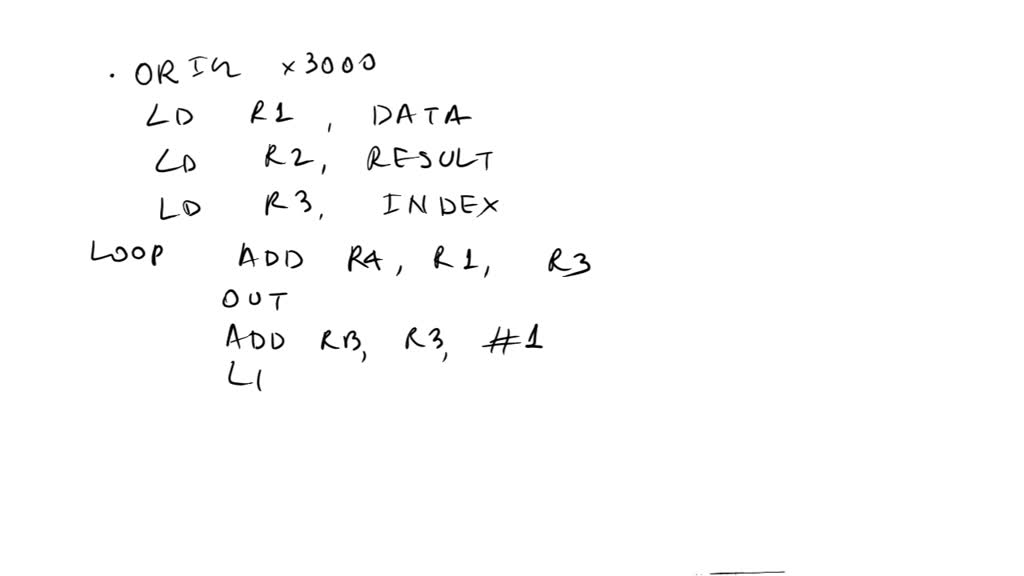 . ORIG x3000
LD R1, DATA
LD R2, RESULT
LD R3, INDEX
LOOP ADD R4, R1, R3
OUT
ADD R3, R3, #1